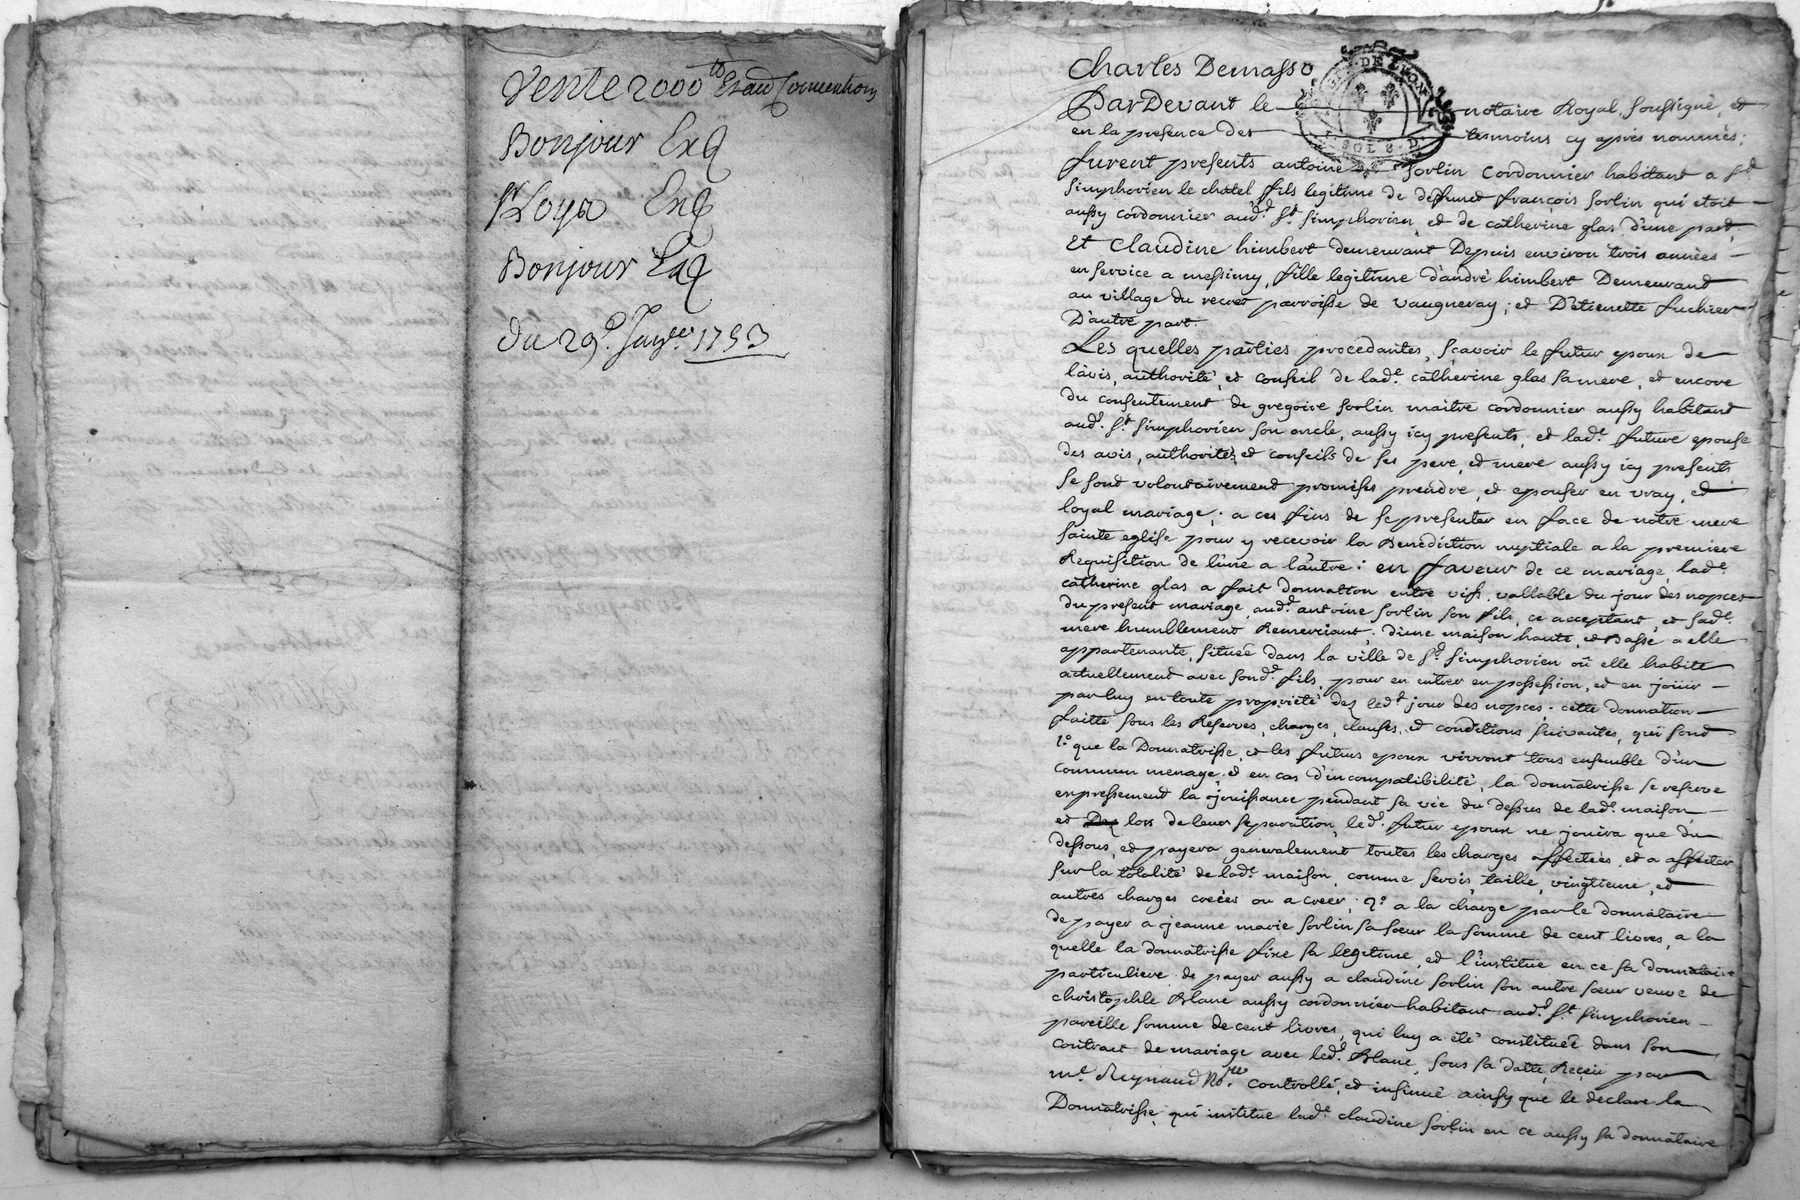 Vente 2000 tt Et aud Conventions
Bonjour Exq
Noya Exq
Bonjour Exq
Du 29e. Janer. 1753
Charles Demasso
DE LYON
SOLS
Par Devant le notaire Royal soussigné, et
en la presence des tesmoins cy aprés nommés;
furent presents antoine sorlin cordonnier habitant a St.
simphorien le chatel fils legitime de deffunct françois sorlin qui etoit
aussy cordonnier aud. St. simphorien, et de catherine glas d'une part,
Et Claudine himbert demeurant Depuis environ trois années
en service a messimy, fille legitime d'andré himbert Demeurand
au village du recret parroisse de vaugneray; et D'etienette fuchier
D'autre part.
Les quelles parties procedantes, sçavoir le futur epoux de
l'avis, authorité, et conseil de lade. catherine glas sa mere, et encore
du consentement de gregoire sorlin maître cordonnier aussy habitant
aud. St. simphorien son oncle, aussy icy presents, et lade. future epouse
des avis, authorités et conseils de ses pere, et mere aussy icy presents
se sond volontairement promises prendre, et epouser en vray, et
loyal mariage; a ces fins de se presenter en face de notre mere
sainte eglise pour y recevoir la Benediction nuptiale a la premiere
Requisition de l'une a l'autre: en faveur de ce mariage, lade.
catherine glas a fait donnation entre vifs, vallable du jour des nopces
du present mariage, aud. antoine sorlin son fils, ce acceptant, et sade.
mere humblement Remerciant, d'une maison haute, et Basse a elle
appartenante, située dans la ville de St. simphorien où elle habite
actuellement avec sond. fils, pour en entrer en possession, et en jouir
par luy en toute propriété dez led. jour des nopces. cette donnation
faitte sous les Reserves, charges, clauses, et conditions suivantes, qui sond
1o. que la Donnatrisse, et les futurs epoux vivront tous ensemble d'un
commun menage, et en cas d'incompatibilité, la donnatrisse se reserve
expressement la jouissance pendant sa vie du dessus de lade. maison,
et lors de leur separation, led. futur epoux ne jouira que du
dessous, et payera generalement toutes les charges affectées, et a affecter
sur la totalité de lade. maison, comme servis, taille, vingtieme, et
autres charges creées ou a creer; 2o. a la charge par le donnataire
de payer a jeanne marie sorlin sa sœur la somme de cent livres, a la
quelle la donnatrisse fixe sa legitime, et l'institue en ce sa donnataire
particuliere de payer aussy a claudine sorlin son autre sœur veuve de
christophle Blanc aussy cordonnier habitant aud. St. simphorien
pareille somme de cent livres, qui luy a été constituée dans son
contract de mariage avec led. Blanc, sous sa datte, Reçeu par
me. Reynaud Nore. controllé, et insinué ainsy que le declare la
Donnatrisse, qui institue lade. claudine sorlin en ce aussy sa donnataire